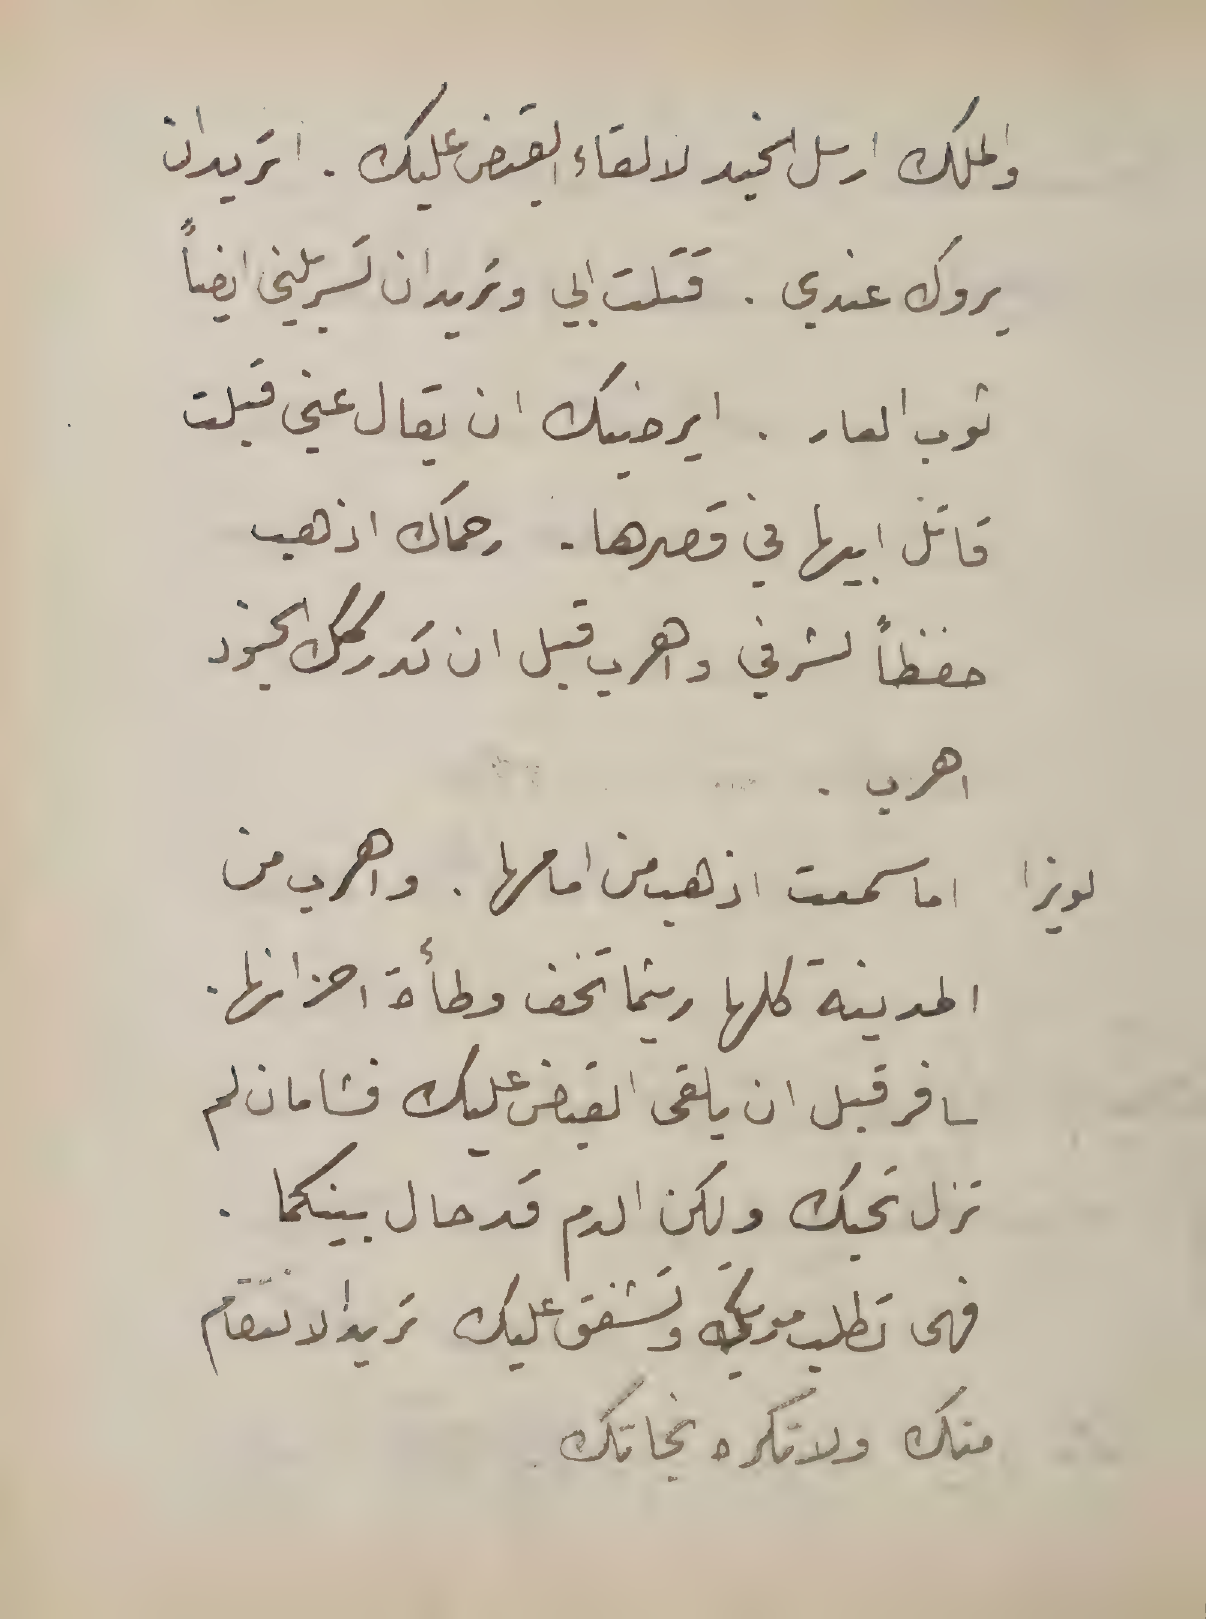 والملك ارسل الجند لالقاء القبض عليك . اتريد ان
يروك عندي . قتلت ابي وتريد ان تسربليني ايضاً
ثوب العار . ايرضيك ان يقال عني قبلت
قاتل ابيها في قصرها . رحماك اذهب
حفظاً لشرفي واهرب قبل ان تدركك الجنود
اهرب .
لويزا اما سمعت اذهب من امامها . واهرب من
المدينة كلها ريثما تخف وطأة احزانها .
سافر قبل ان يلقى القبض عليك فشامان لم
تزل تحبك ولكن الدم قد حال بينكما .
فهى تطلب موتك وتشفق عليك تريد الانتقام
منك ولا تكره نجاتك .